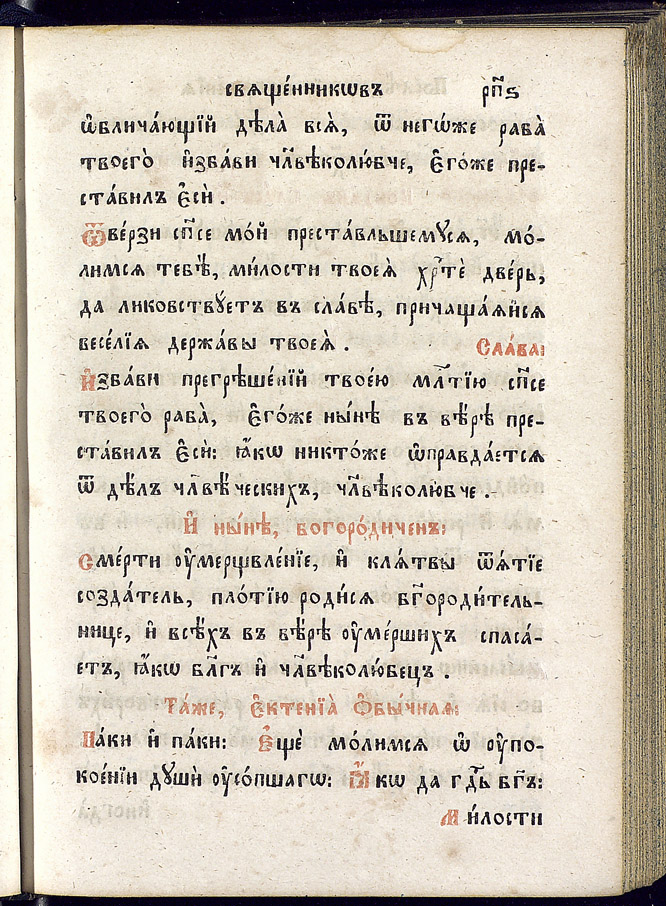 свѧще́нникѡвъ рп҃ѕ
ѡ҆блича́ющїй дѣла̀ всѧ̑, ѿ негѡ́же раба̀
твоего̀ и҆зба́ви чл҃вѣколю́бче, є҆го́же пре-
ста́вилъ є҆сѝ.
Ѿве́рзи сп҃се мо́й преста́вльшемꙋсѧ, мо́-
лимсѧ тебѣ̀, ми́лости твоеѧ̀ хрⷭ҇тѐ две́рь,
да ликовствꙋ́етъ въ сла́вѣ, причаща́ѧйсѧ
весе́лїѧ держа́вы твоеѧ̀. Сла́ва:
И҆зба́ви прегрѣше́нїй твое́ю млⷭ҇тїю сп҃се
твоего̀ раба̀, є҆го́же ны́нѣ въ вѣ́рѣ пре-
ста́вилъ є҆сѝ: ꙗ҆́кѡ никто́же ѡ҆правда́етсѧ
ѿ дѣ́лъ чл҃вѣ́ческихъ, чл҃вѣколю́бче.
И҆ ны́нѣ, богоро́диченъ:
Сме́рти ᲂу҆мерщвле́нїе, и҆ клѧ́твы ѿѧ́тїе
созда́тель, пло́тїю роди́сѧ бг҃ороди́тель-
нице, и҆ всѣ́хъ въ вѣ́рѣ ᲂу҆ме́ршихъ спаса́-
етъ, ꙗ҆́кѡ бл҃гъ и҆ чл҃вѣколю́бецъ.
Та́же, є҆ктенїа̀ ѻ҆бы́чнаѧ:
Па́ки и҆ па́ки: Є҆щѐ мо́лимсѧ ѡ҆ ᲂу҆по-
кое́нїи дꙋшѝ ᲂу҆со́пшагѡ: Ꙗ҆́кѡ да гдⷭ҇ь бг҃ъ:
Ми́лости